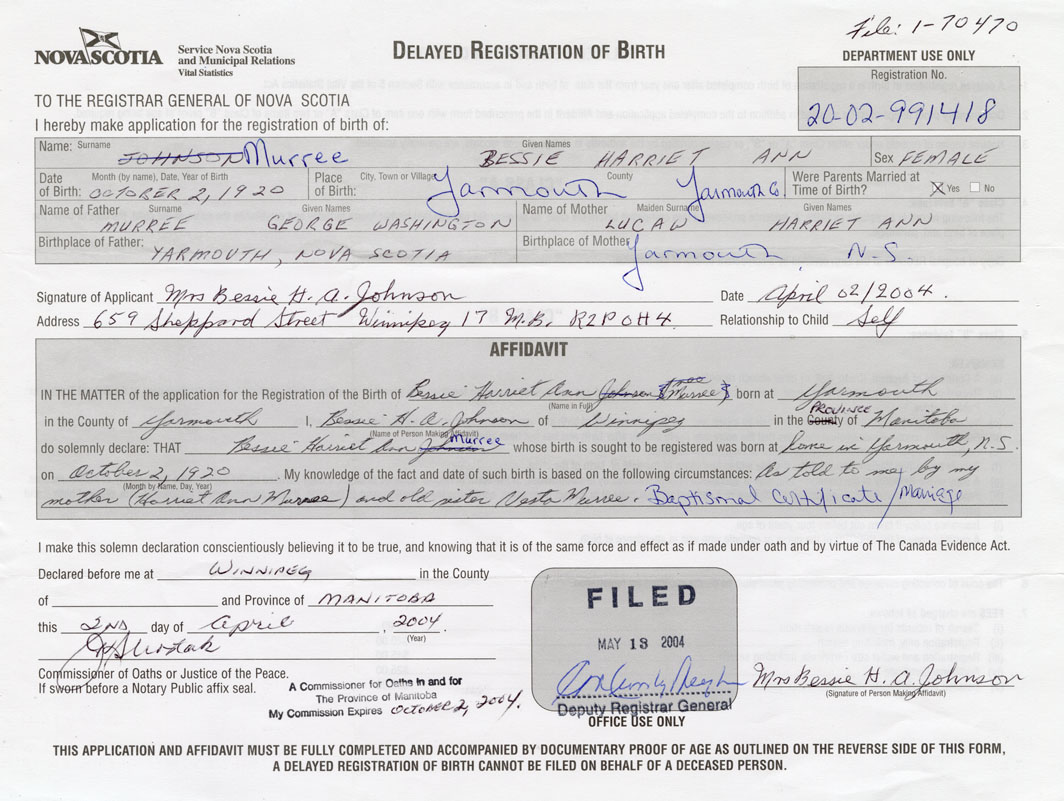 File: 1-70470
NOVA SCOTIA
Service Nova Scotia
and Municipal Relations
Vital Statistics
DELAYED REGISTRATION OF BIRTH
DEPARTMENT USE ONLY
Registration No.
20-02-991418
TO THE REGISTRAR GENERAL OF NOVA SCOTIA
I hereby make application for the registration of birth of:
Name: Surname JOHNSON Murree Given Names BESSIE HARRIET ANN Sex FEMALE
Date of Birth: Month (by name), Date, Year of Birth OCTOBER 2, 1920 Place of Birth: City, Town or Village Yarmouth County Yarmouth Co. Were Parents Married at Time of Birth? Yes No
Name of Father Surname MURREE Given Names GEORGE WASHINGTON Name of Mother Maiden Surname LUCAW Given Names HARRIET ANN
Birthplace of Father: YARMOUTH, NOVA SCOTIA Birthplace of Mother Yarmouth N.S.
Signature of Applicant Mrs Bessie H. A. Johnson Date April 02/2004.
Address 659 Sheppard Street Winnipeg 17 M.B. R2P 0H4. Relationship to Child Self
AFFIDAVIT
IN THE MATTER of the application for the Registration of the Birth of Bessie Harriet Ann Johnson (Murree) born at Yarmouth
(Name in Full)
in the County of Yarmouth I, Bessie H. A. Johnson of Winnipeg in the County PROVINCE of Manitoba
(Name of Person Making Affidavit)
do solemnly declare: THAT Bessie Harriet Ann Johnson Murree whose birth is sought to be registered was born at home in Yarmouth, N.S.
on October 2, 1920. My knowledge of the fact and date of such birth is based on the following circumstances: As told to me by my
(Month by Name, Day, Year)
mother (Harriet Ann Murree) and old sister Vesta Murree. Baptismal Certificate/Marriage
I make this solemn declaration conscientiously believing it to be true, and knowing that it is of the same force and effect as if made under oath and by virtue of The Canada Evidence Act.
Declared before me at WINNIPEG in the County
of and Province of MANITOBA
this 2ND day of April, 2004.
(Year)
Commissioner of Oaths or Justice of the Peace.
If sworn before a Notary Public affix seal.
A Commissioner for Oaths in and for
The Province of Manitoba
My Commission Expires OCTOBER 2, 2004.
FILED
MAY 13 2004
Deputy Registrar General
OFFICE USE ONLY
Mrs Bessie H. A. Johnson
(Signature of Person Making Affidavit)
THIS APPLICATION AND AFFIDAVIT MUST BE FULLY COMPLETED AND ACCOMPANIED BY DOCUMENTARY PROOF OF AGE AS OUTLINED ON THE REVERSE SIDE OF THIS FORM,
A DELAYED REGISTRATION OF BIRTH CANNOT BE FILED ON BEHALF OF A DECEASED PERSON.